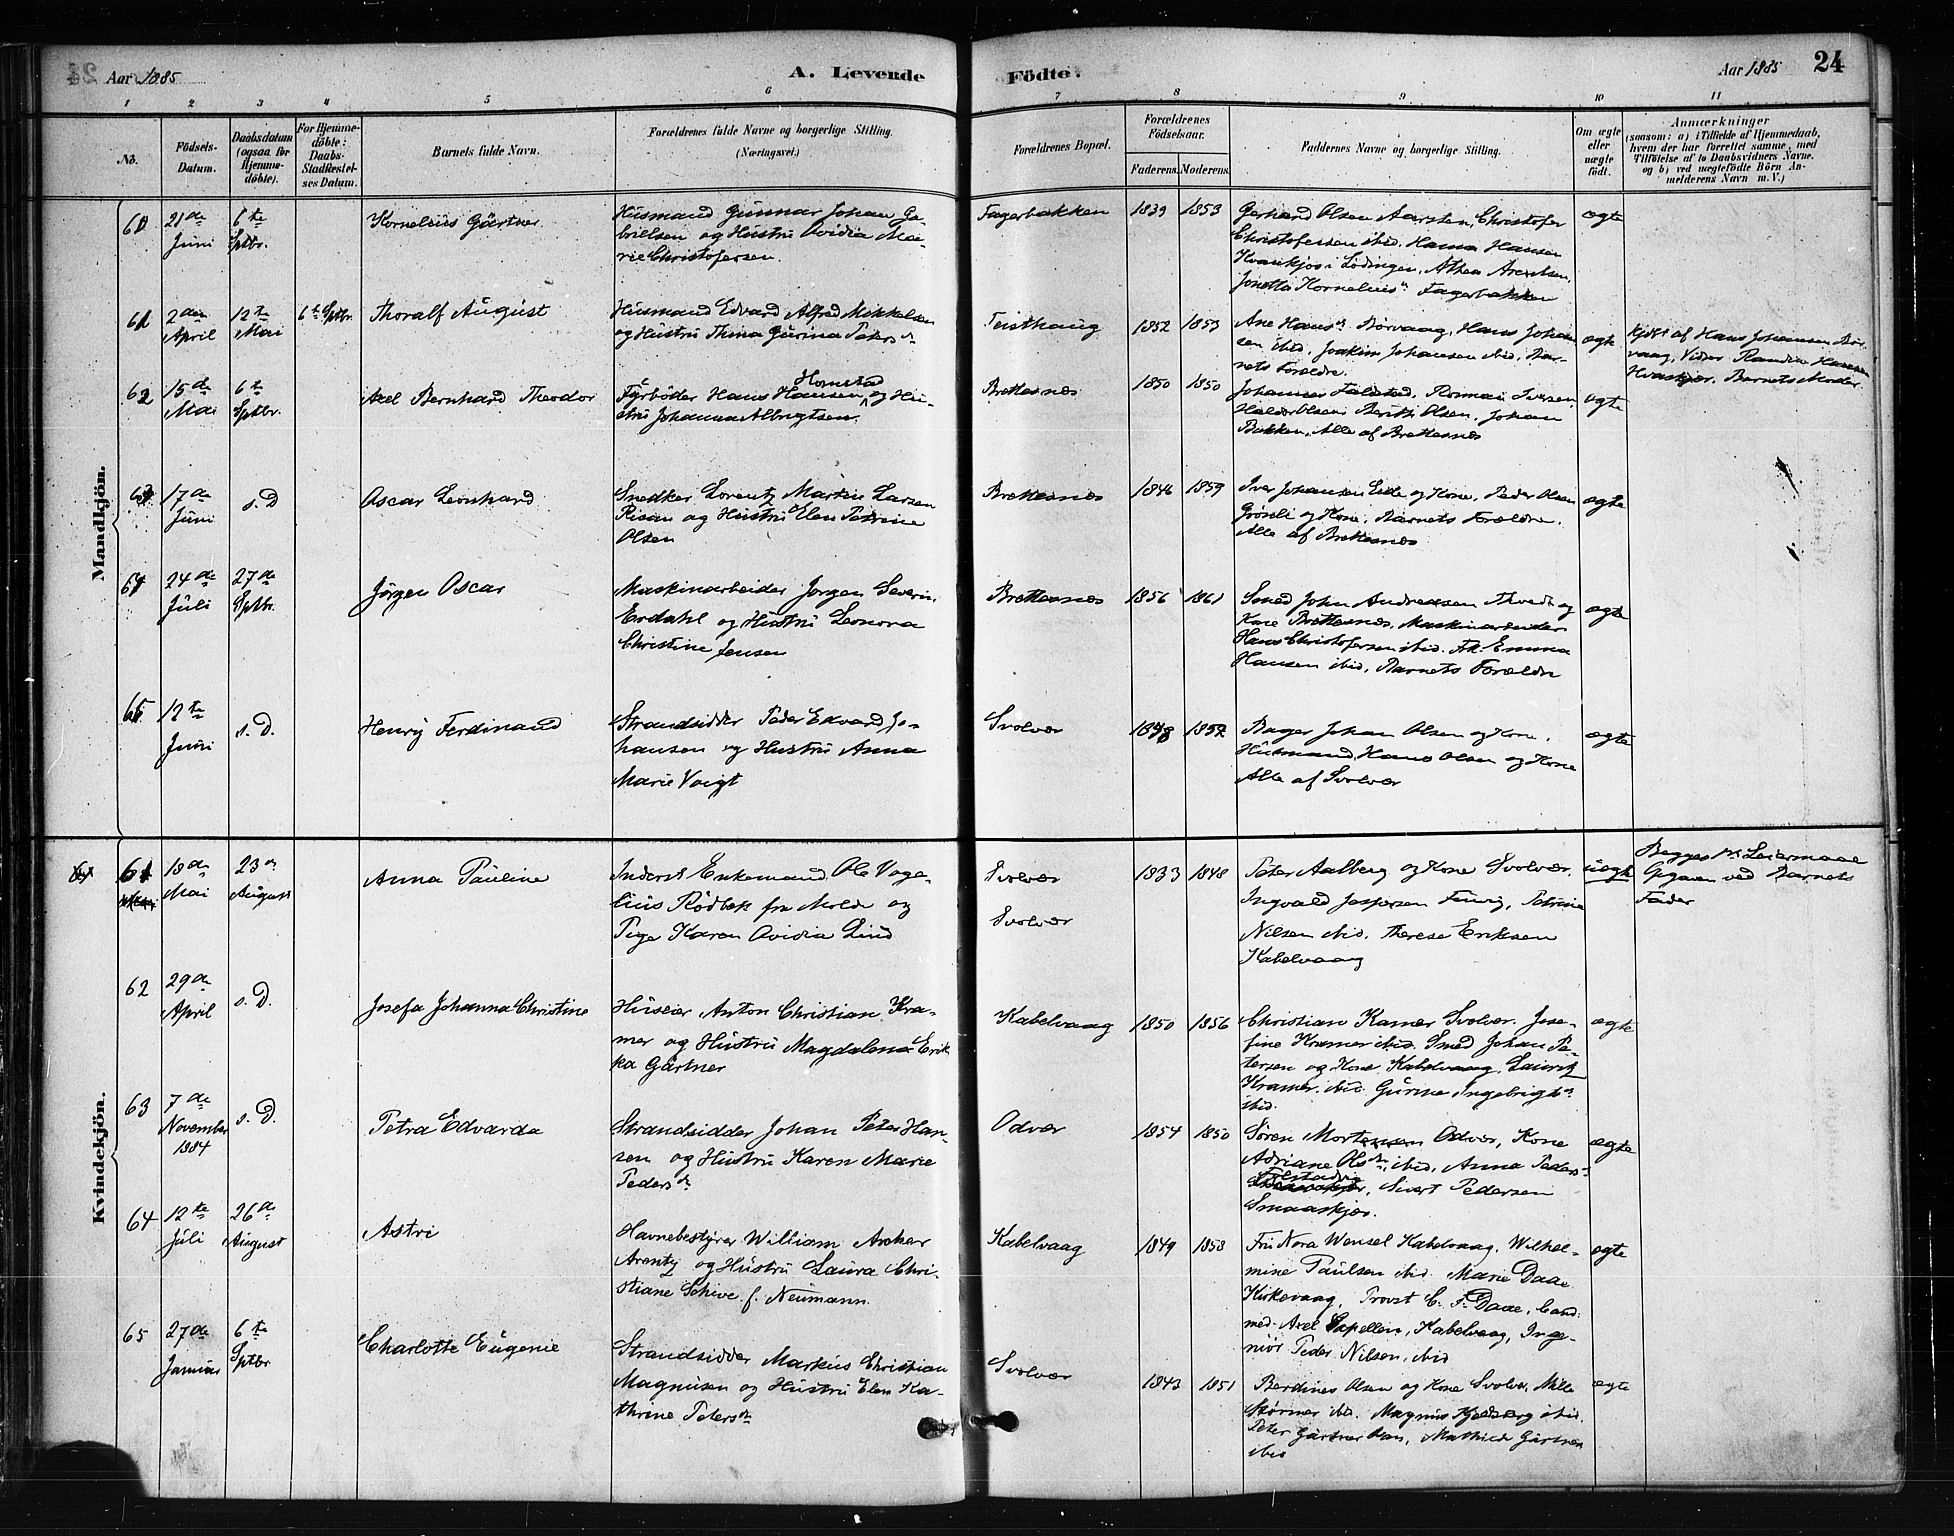 Aar 1885
A. Levende
Födte.
Aar 1885
24
1 2 3 4 5 6 7 8 9 10 11
No.
Födsels-
Datum.
Daabsdatum
(ogsaa for
Hjemme-
döbte).
For Hjemme-
döbte:
Daabs-
Stadfæstel-
ses Datum.
Barnets fulde Navn.
Forældrenes fulde Navne og borgerlige Stilling.
(Næringsvei.)
Forældrenes Bopæl.
Forældrenes
Födselsaar.
Faderens.
Moderens.
Faddernes Navne og borgerlige Stilling.
Om ægte
eller
uægte
födt.
Anmærkninger
(saasom: a) i Tilfælde af Hjemmedaab,
hvem der har forrettet samme, med
Tilföielse af to Daabsvidners Navne.
og b) ved uægtefödte Börn An-
melderens Navn m. V.)
Mandkjön.
21de
Juni
6te
Sptbr.
Kornelius Gärtner
Husmand Gunnar Johan Ga-
brielsen og Hustru Ovidia Ma-
rie Christofersen
Fagerbakken
1839
1853
Gerhard Olsen Aarsten, Christofer
Christofersen ibid. Hanna Hansen
i Lödingen, Althea Arentsen,
Jonetta Kornelius Fagerbakken
ægte
61
2den
April
12te
Mai
6te Sptbr.
Thoralf August
Husmand Edvard Alfred Mikkelsen
og Hustru Thina Gurina Petersdr
Teisthaug
1852
1853
Ane Hansdr Börvaag, Hans Johan-
sen ibid, Joakim Johansen ibid, Bar-
nets Forældre.
ægte
Hjdbt af Hans Johansen Bör-
vaag, Vidner Randia Hansen
Barnets Moder
62
15de
Mai
6te
Sptbr.
Axel Bernhard Theodor
Homstad
Fyrböder Hans Hansen og Hu-
stru Johanna Albrigtsen.
Brettesnæs
1850
1850
Johannes Falstad, Iversen,
Haldor Olsen, Berit Olsen, Johan
Bakken, Alle af Brettesnæs
ægte
63
17de
Juni
s.D
Oscar Leonhard
Snedker Lorentz Martin Larsen
Risan og Hustru Elen Petrine
Olsen
Brettesnæs
1846
1859
Iver Johansen Eide og Kone, Peder Olsen
Grönli og Kone, Barnets Forældre.
Alle af Brettesnæs
ægte
64
24de
Juli
27de
Sptbr.
Jörgen Oscar
Maskinarbeider Jörgen Severin
Erdahl og Hustru Leonora
Christine Jensen
Brettesnæs
1856
1861
Smed John Andreassen og
Kone Brettesnæs, Maskinarbeider
Hans Christofersen ibid. Frk. Emma
Hansen ibid, Barnets Forældre
ægte
65
12te
Juni
s.D.
Henry Ferdinand
Strandsidder Peder Edvard Jo-
hansen og Hustru Anna
Marie Voigt
Svolvær
1848
1852
Bager Johan Olsen og Kone.
Husmand Hans Olsen og Kone
Alle af Svolvær
ægte
Kvindekjön.
61
18de
Mai
23de
August
Anna Pauline
Inderst Enkemand Ole Vage-
lius Rödbek fra Molde og
Pige Karen Ovidia Lind
Svolvær
Svolvær
1833
1848
Peter Aalberg og Kone Svolvær.
Ingvald Jespersen Petrine
Nilsen ibid. Therese Eriksen
Kabelvaag
uægte
Begges 1ste Leiermaal
Opgaven ved Barnets
Fader
62
29de
April
s.D.
Josefa Johanna Christine
Huseier Anton Christian Kra-
mer og Hustru Magdalena Erik-
ka Gärtner
Kabelvaag
1850
1856
Christian Kamer Svolvær. Jose-
fine Kramer ibid. Smed Johan Pe-
tersen og Kone Kabelvaag, Lauritz
Kramer ibid. Gurine Ingebrigtsdr
ibid.
ægte
63
7de
November
1884
s.D.
Petra Edvarda
Strandsidder Johan Peter Han-
sen og Hustru Karen Marie
Pedersdr
Odvær
1854
1850
Sören Mortensen Odvær, Kone
Adriane Olsdr ibid, Anna Pedersdr
Sivert Pedersen
Smaaskjær.
ægte
64
12te
Juli
26de
August
Astri
Havnebestyrer William Archer
Arentz og Hustru Laura Chri-
stiane Schive f. Neumann.
Kabelvaag
1849
1858
Fru Nora Wensel Kabelvaag. Wilhel-
mine Paulsen ibid. Marie Daae
Kirkevaag, Provst C. F. Daae, Cand
med. Axel Kabelvaag, Inge-
niör Peder Nilsen, ibid
ægte
65
27de
Januar
6te
Sptbr
Charlotte Eugenie
Strandsidder Markus Christian
Magnusen og Hustru Elen Ka-
thrine Petersdr
Svolvær
1843
1851
Berdines Olsen og Kone Svolvær, Mille
Störmer ibid. Magnus Kjeldberg ibid.
Peter Gärtner Mathilde Gärtner
ibid
ægte